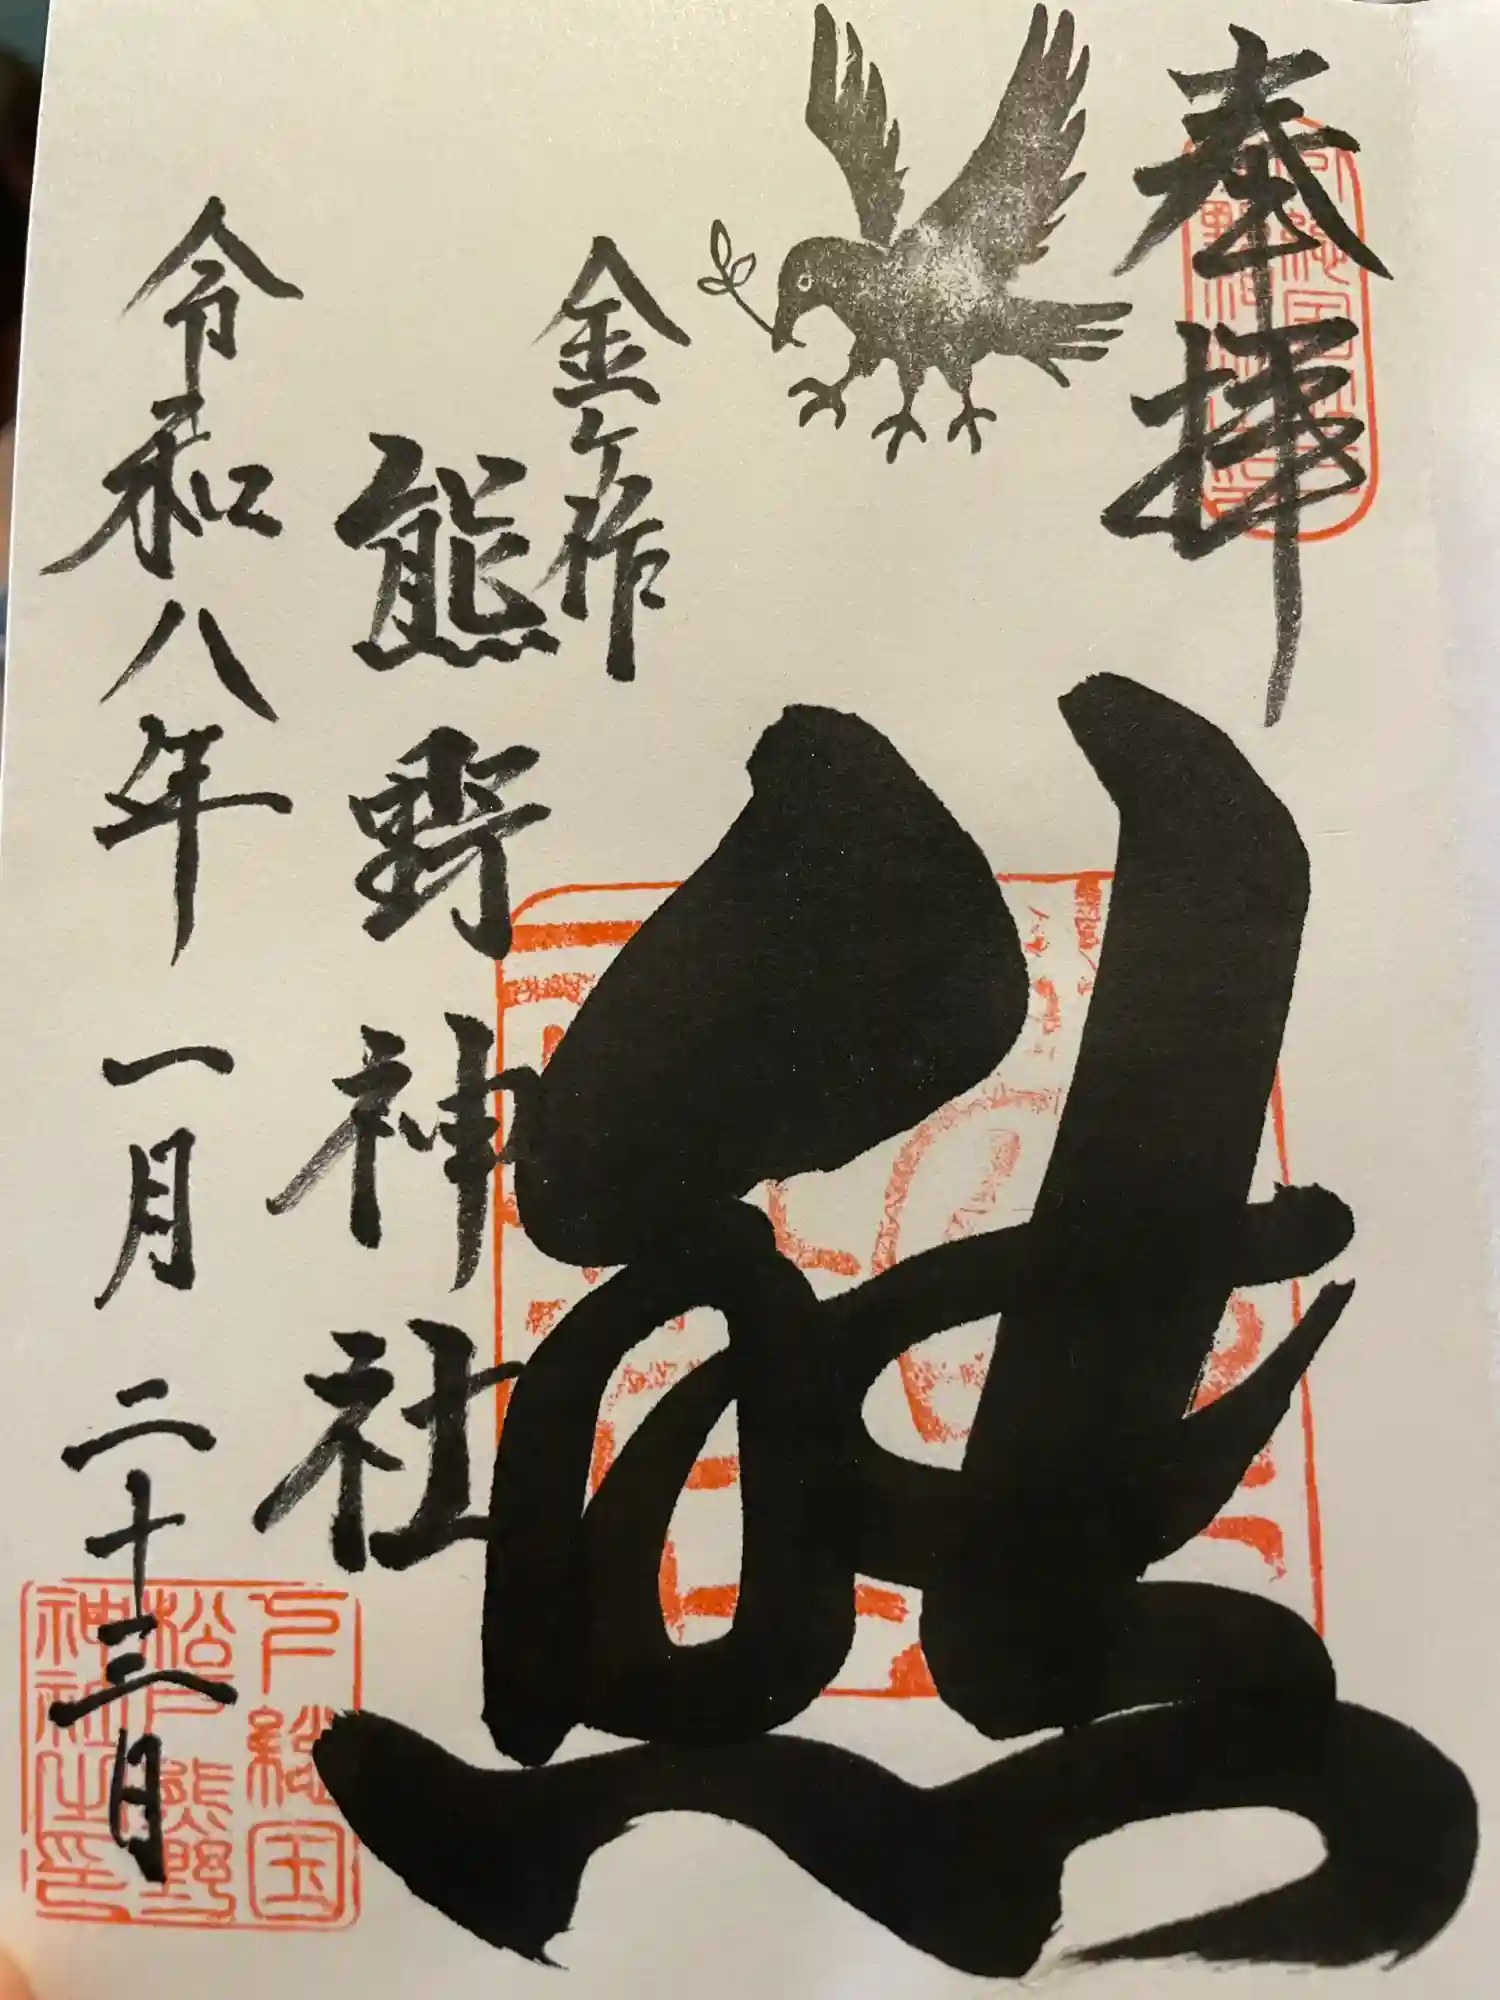 奉拝
熊
金ケ作
熊野神社
令和八年一月二十三日
下総国
松戸熊野
神社之印